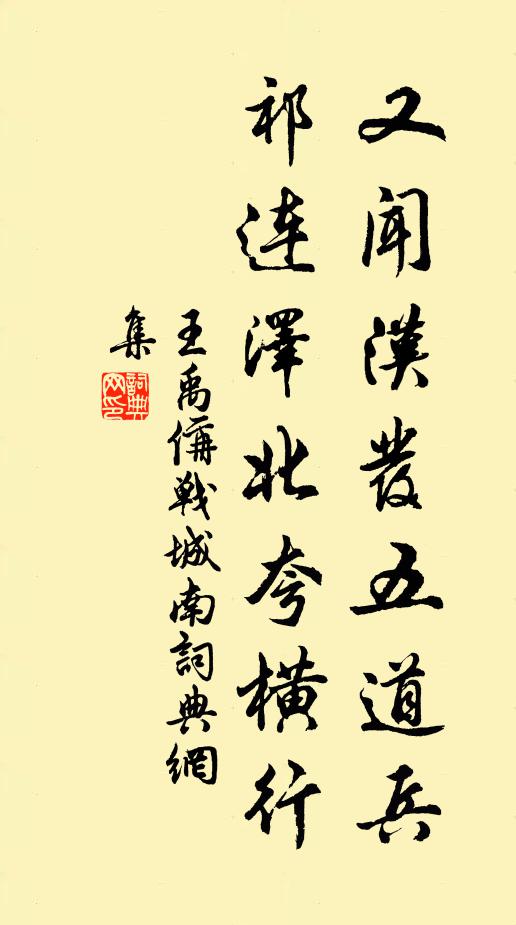 又闻漢發五道兵
祁连澤北夸橫行
王禹偁戰城南詞典網
集
詞典网印